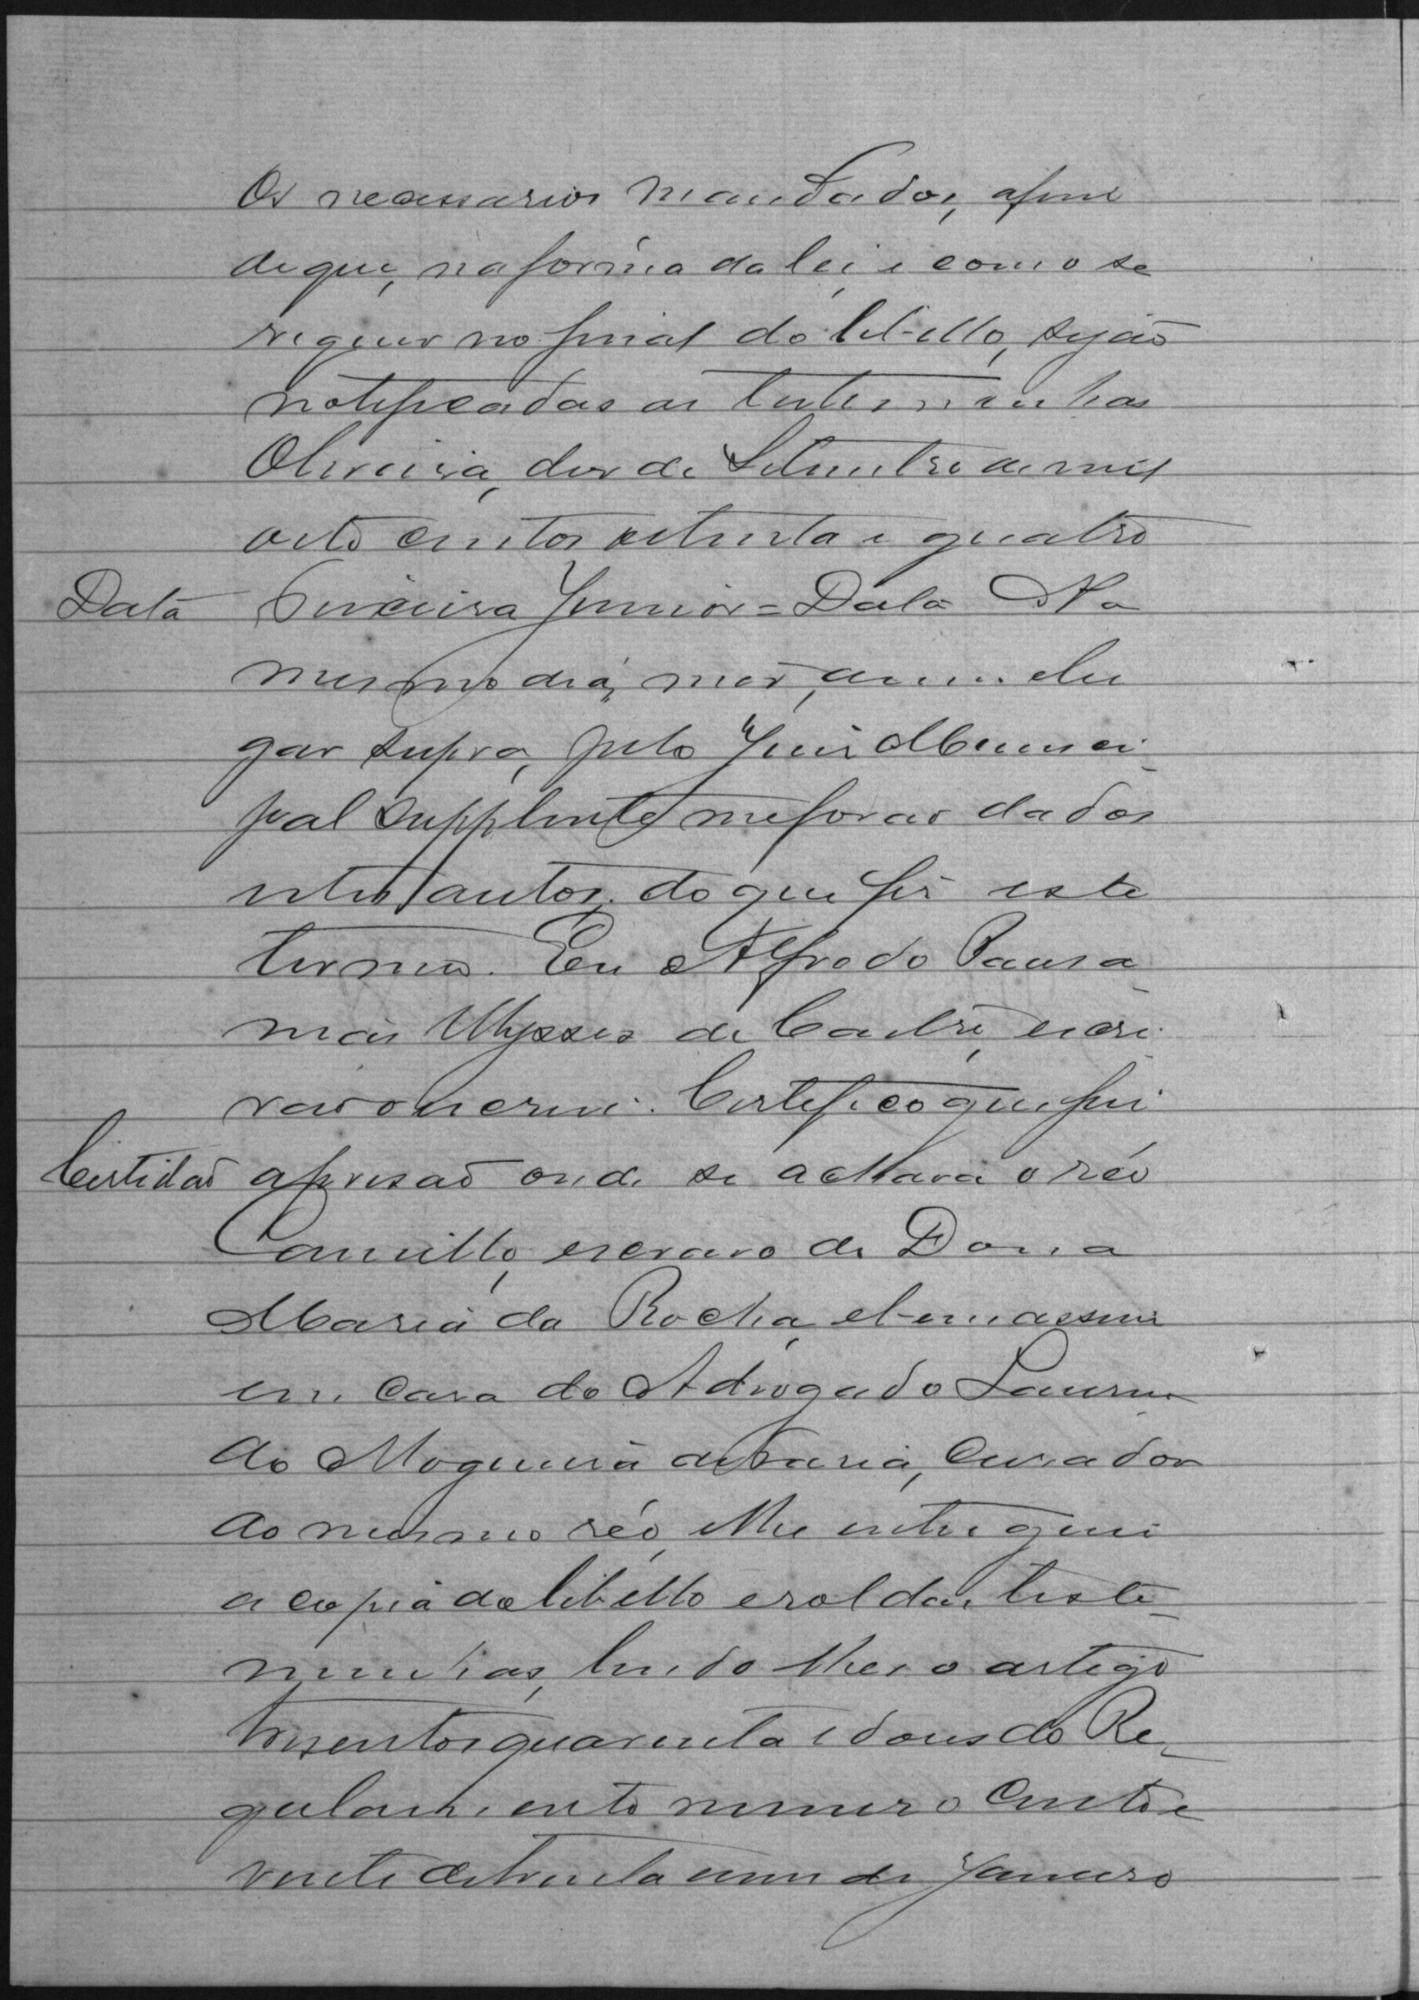 os necessarios mandados, afim
de que, na forma da lei, e como se
requer no final do libello, sejão
notificadas as testemunhas
Oliveira, dez de Setembro de mil
oito centos oitenta e quatro
Data Junior = Data No
mesmo dia, mez, anno e lu
gar supra, pelo Juiz Munici-
pal Supplente me forão dados
estes autos, do que fiz este
termo. Eu Alfredo Pausa
nias Ulysses de Castro, escri-
vão o escrevi. Certifico que fui
Certidão a prisão onde se achava o réo
Camillo, escravo de Dona
Maria da Rocha, e bem assim
em casa do Advogado Laurin
do Nogueira de Faria, curador
do mesmo réo, e lhe entreguei
a copia do libello e rol das teste-
munhas, lendo-lhes o artigo
tresentos quarenta e dous do Re-
gulamento numero cento e
vinte de trinta e um de Janeiro